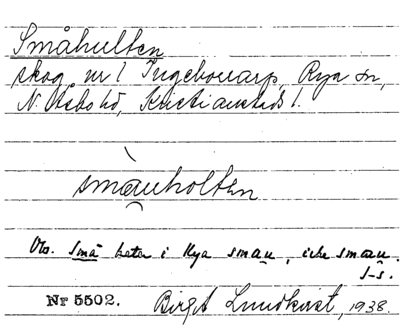 Småhulten
skog nr 1 Ingebovarp, Rya sn,
N. Åsbo hd, Kristianstads l.
småuholten
Obs. små heter i Rya smau, icke smau.
S-s.
Nr 5502. Birgit Lundkvist, 1938.